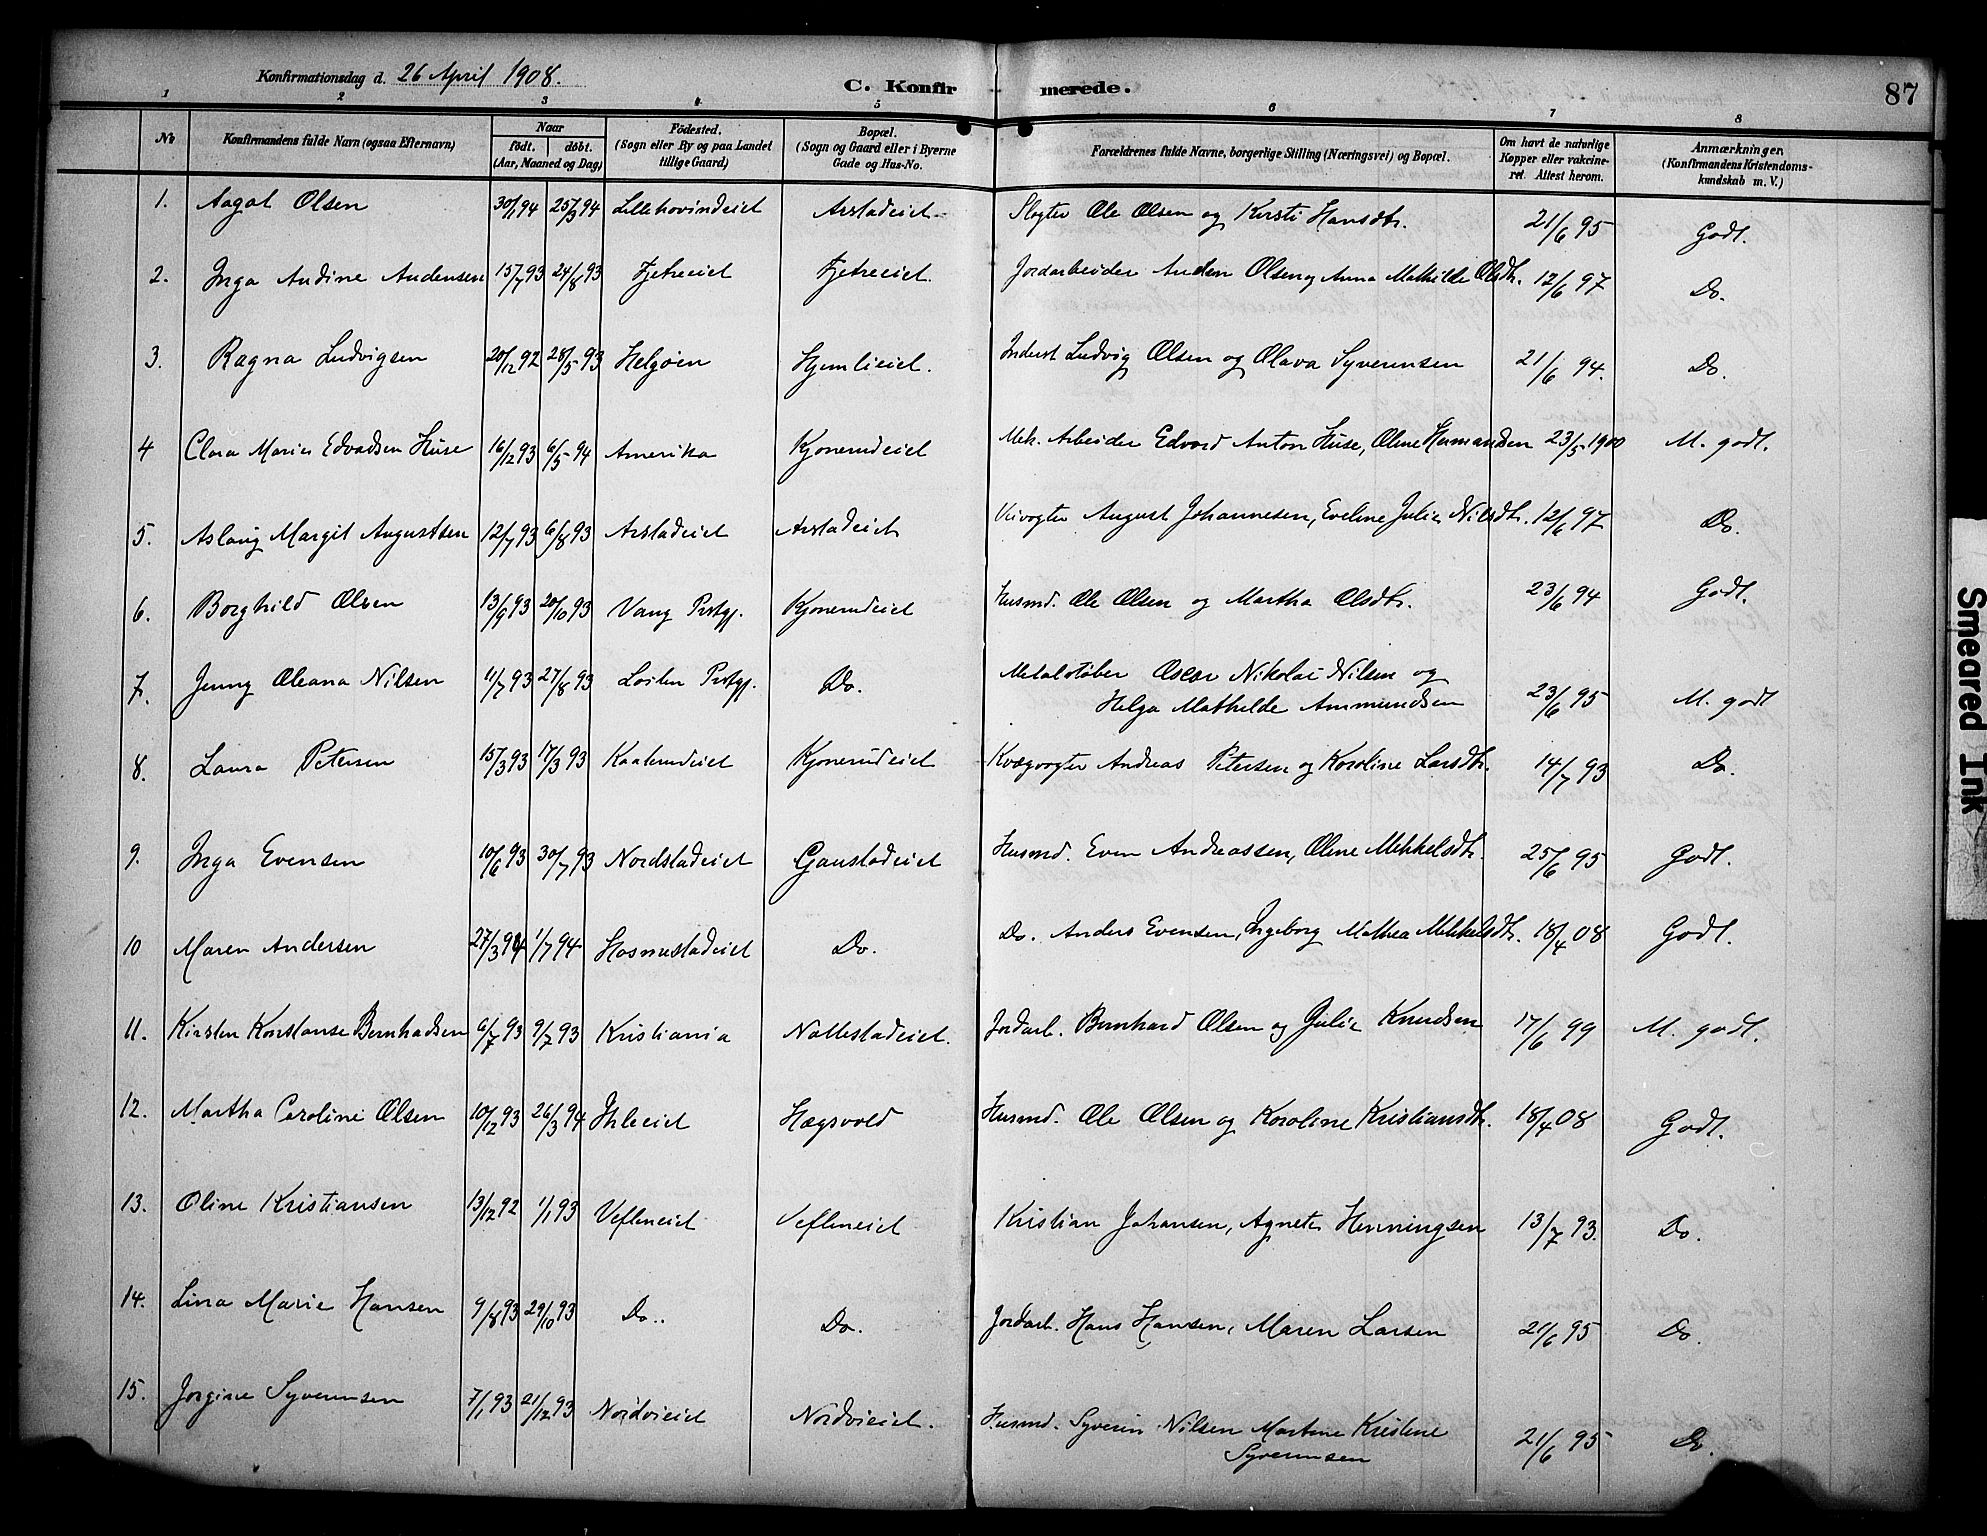 Konfirmationsdag d. 26 April 1908.
C. Konfirmerede.
87
1 2 3 4 5 6 7 8
No
Konfirmandens fulde Navn (ogsaa Efternavn)
Naar
födt. döbt.
(Aar, Maaned og Dag)
Födested.
(Sogn eller By og paa Landet
tillige Gaard)
Bopæl.
(Sogn og Gaard eller i Byerne
Gade og Hus-No.
Forældrenes fulde Navne, borgerlige Stilling (Næringsvei) og Bopæl.
Om havt de naturlige
Kopper eller vakcine-
ret. Attest herom.
Anmærkninger
(Konfirmandens Kristendoms-
kundskab m. V.)
1. Aagot Olsen 30/1 94 25/3 94 Lillehovindeiet Arstadeiet Slagter Ole Olsen og Kirsti Hansdtr. 21/6 95 Godt.
2. Inga Andine Andensen 15/7 93 24/8 93 Fjetreeiet Fjetreeiet Jordarbeider Anden Olsen og Anna Mathilde Olsdtr. 12/6 97 Do.
3. Ragna Ludvigsen 20/12 92 28/5 93 Helgøen Hjemlieiet. Inderst Ludvig Olsen og Olava Syverinsen 21/6 94. Do.
4 Clara Marie Edvadsen Huse 16/12 93 6/5 94 Amerika Kjonerudeiet Mek. Arbeider Edvard Anton Huse, Oline Hermandsen 23/5 1900 M. godt.
5. Aslaug Margit Augustsen 12/7 93 6/8 93 Arstadeiet Arstadeiet Veivogter August Johannesen, Eveline Julie Nilsdtr. 12/6 97 Do.
6. Borghild Olsen 13/9 93 20/10 93 Vang Prstgj. Kjonerudeiet Husmd. Ole Olsen og Martha Olsdtr. 23/6 94 Godt.
7. Jenny Oleana Nilsen 11/7 93 27/8 93 Løiten Prstgj. Do. Metalstøber Oscar Nikolai Nilsen og
Helga Mathilde Ammundsen 23/6 95 M. godt
8. Laura Petersen 15/3 93 17/3 93 Kaalerudeiet Kjonerudeiet Kvægvogter Andreas Petersen og Karoline Larsdtr. 14/7 93 Do.
9. Inga Evensen 10/6 93 30/7 93 Nordstadeiet Gaustadeiet Husmd. Even Andreassen, Oline Mikkelsdtr. 25/6 95 Godt.
10 Maren Andersen 27/3 94 1/7 94 Hosmestadeiet Do. Do. Anders Evensen, Ingeborg Mathea Mikkelsdtr. 18/4 08 Godt.
11. Kirsten Konstanse Bernhadsen 6/7 93 9/7 93 Kristiania Nottestadeiet. Jordarb. Bernhard Olsen og Julie Knudsen 17/6 99 M. godt.
12. Martha Caroline Olsen 10/12 93 26/3 94 Ihleeiet Hægsvold Husmd. Ole Olsen og Karoline Kristiansdtr. 18/4 08 Godt.
13. Oline Kristiansen 13/12 92 1/1 93 Vefleneiet Vefleneiet Kristian Johansen, Agnete Henningsen 13/7 93. Do.
14. Lina Marie Hansen 9/8 93 29/10 93 Do. Do. Jordarb. Hans Hansen, Maren Larsen 21/6 95 Do.
15. Jorgine Syverinsen 7/1 93 21/12 93 Nordvieiet Nordvieiet. Husmd. Syverin Nilsen Martine Kristine
Syverinsen 21/6 95 Do.
Smeared Ink